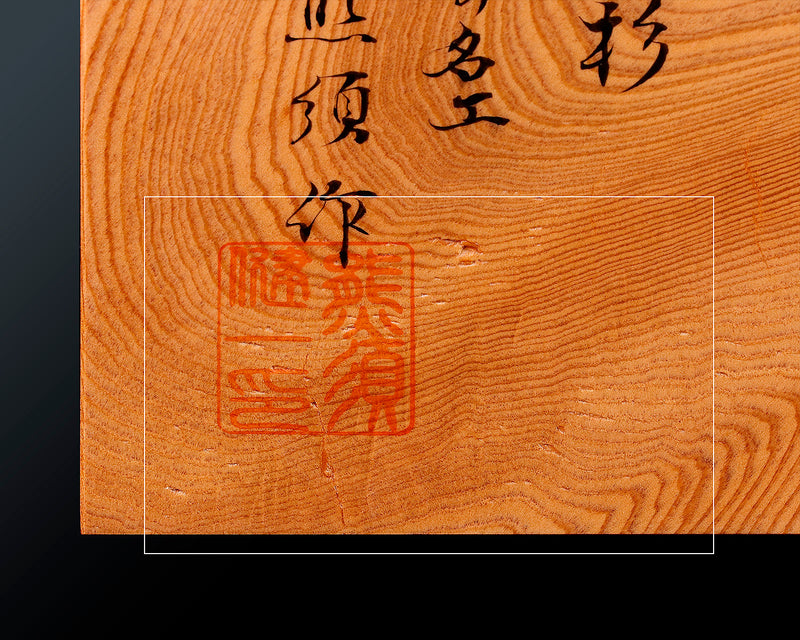 杉
名工
熊須作
熊須
一印